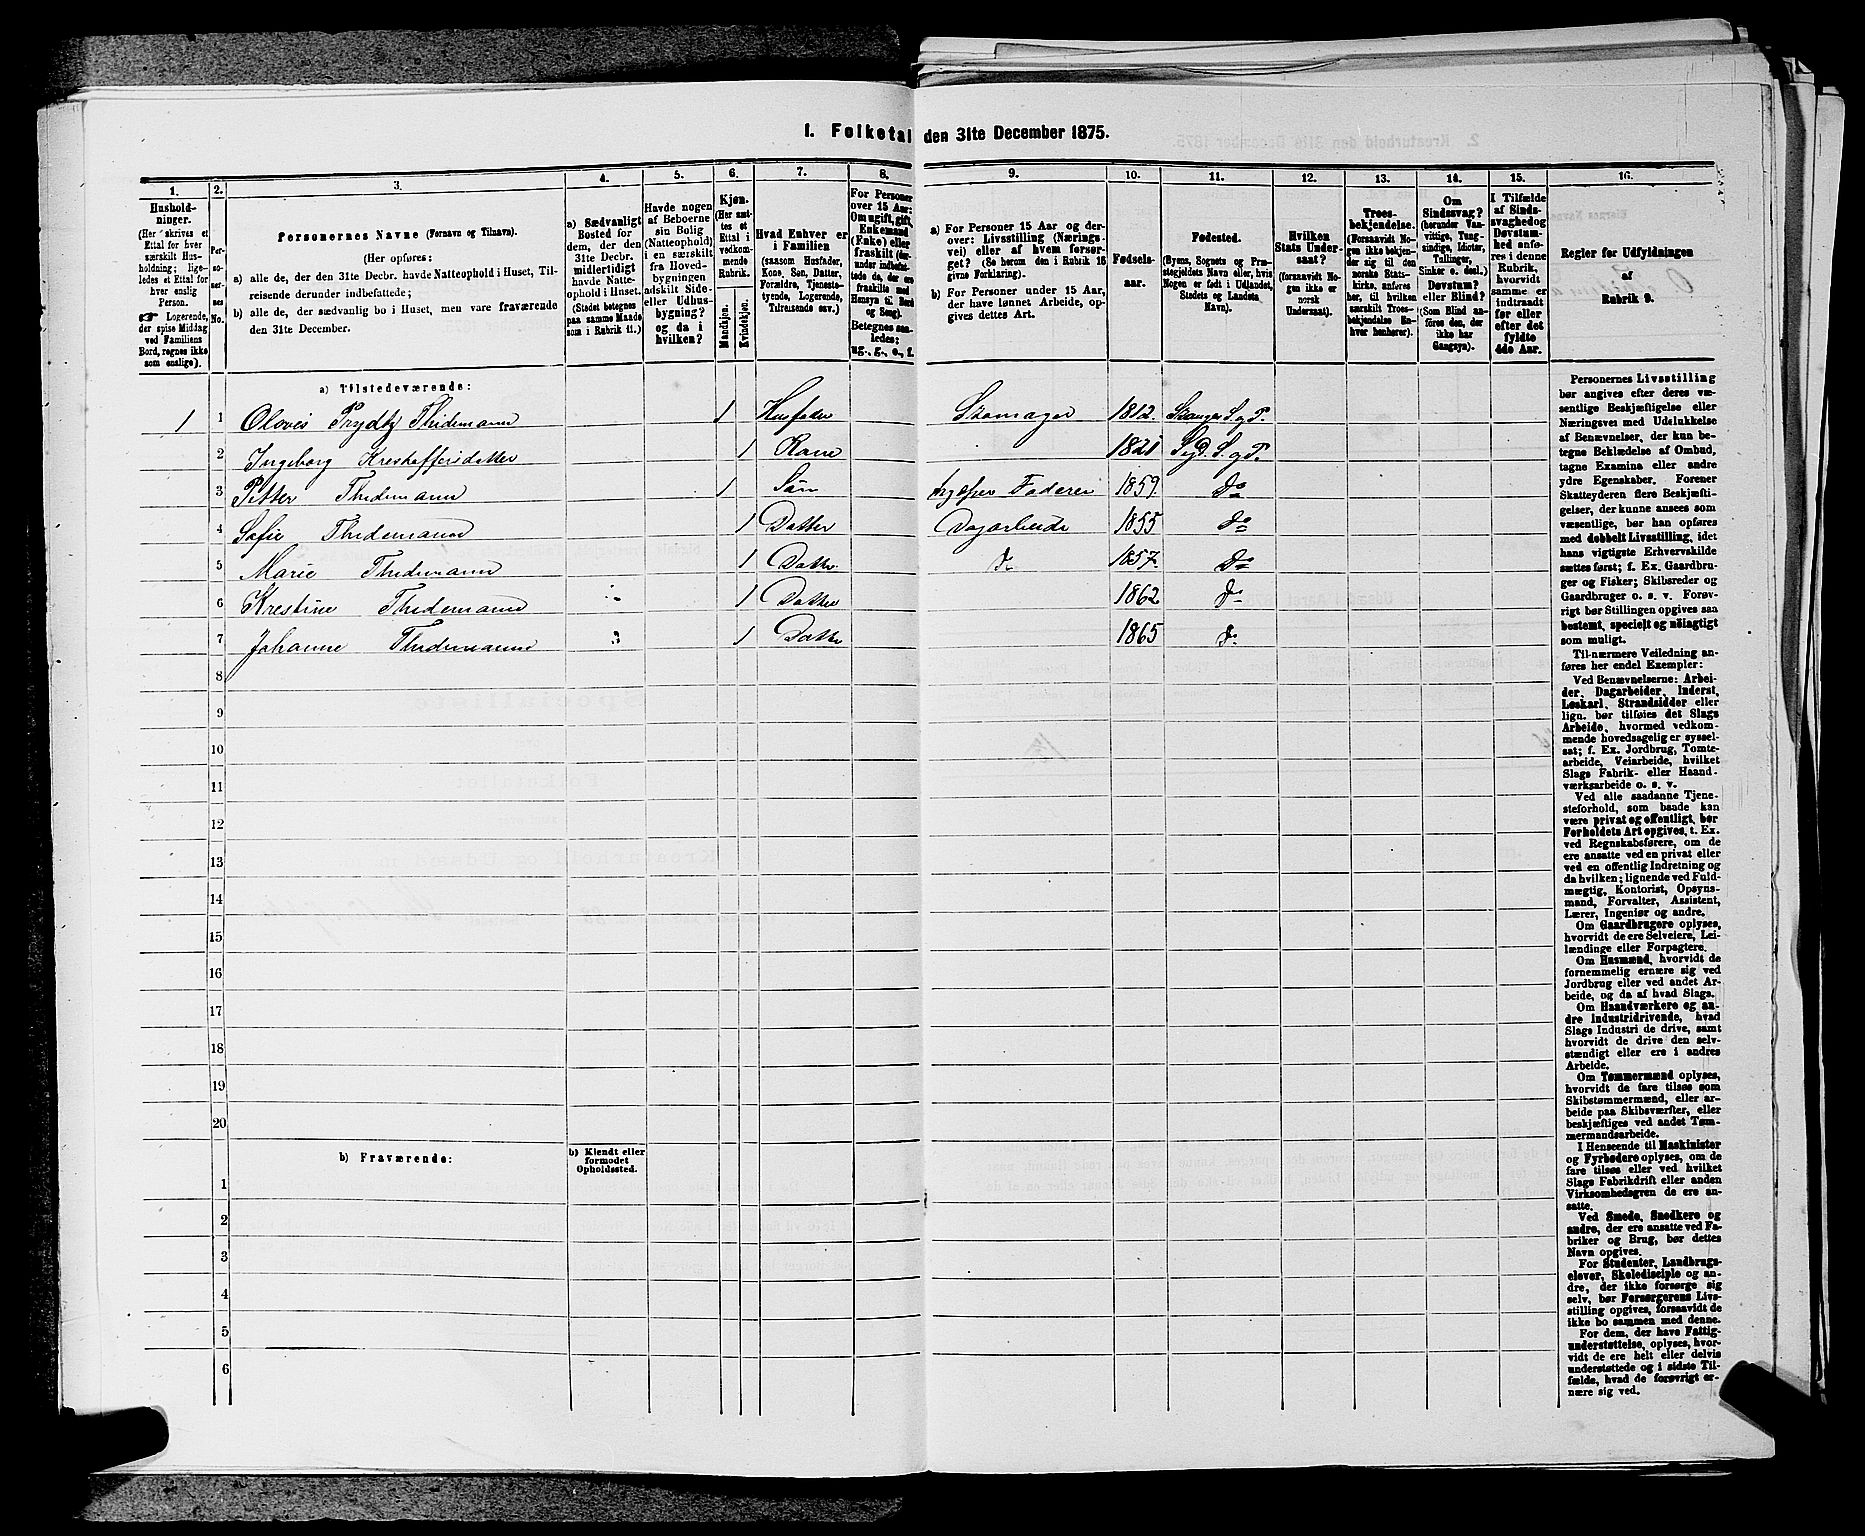 1. Folketal den 31te December 1875.
1. 2. 3. 4. 5. 6. 7. 8. 9. 10. 11. 12. 13. 14. 15. 16.
Hushold-
ninger.
(Her skrives et
Ettal for hver
særskilt Hus-
holdning; lige-
ledes et Ettal for
hver enslig
Person.
Logerende,
der spise Middag
ved Familiens
Bord, regnes ikke
som enslige).
Per-
so-
ner-
nes
No.
Personernes Navne (Fornavn og Tilnavn).
(Her opføres:
a) alle de, der den 31te Decbr. havde Natteophold i Huset, Til-
reisende derunder indbefattede;
b) alle de, der sædvanlig bo i Huset, men vare fraværende
den 31te December.
a) Sædvanligt
Bosted for
dem, der den
31te Decbr.
midlertidigt
havde Natte-
ophold i Huset.
(Stedet betegnes
paa samme Maade
som i Rubrik 11.)
Havde nogen
af Beboerne
sin Bolig
(Natteophold)
i en særskilt
fra Hoved-
bygningen
adskilt Side-
eller Udhus-
bygning?
og da i
hvilken?
Kjøn.
(Her sæt-
tes et
Ettal i
vedkom-
mende
Rubrik.
Mandskjøn.
Kvindekjøn.
Hvad Enhver er
i Familien
(saasom Husfader,
Kone, Søn, Datter,
Forældre, Tjeneste-
tyende, Logerende,
Tilreisende osv.)
For Personer
over 15 Aar:
Om ugift, gift,
Enkemand
(Enke) eller
fraskilt
Betegnes saa-
ledes:
ug., g., e., f.
a) For Personer 15 Aar og der-
over: Livsstilling (Nærings-
vei) eller af hvem forsør-
get? (Se herom den i Rubrik 16
givne Forklaring).
b) For Personer under 15 Aar,
der have lønnet Arbeide, op-
gives dettes Art.
Fødsels-
aar.
Fødested.
(Byens, Sognets og Præ-
stegjeldets Navn eller, hvis
Nogen er født i Udlandet,
Stedets og Landets
Navn).
Hvilken
Stats Under-
saat?
(forsaavidt No-
gen ikke er
norsk
Undersaat).
Troes-
bekjendelse.
(Forsaavidt No-
gen ikke bekjen-
der sig til den
norske Stats-
kirke, anføres
her, til hvilken
særskilt Troes-
bekjendelse En-
hver henhører).
Om
Sindssvag?
(herunder Van-
vittige, Tung-
sindige, Idioter,
Tullinger,
Sinker o. desl.)
Døvstum?
eller Blind?
(Som Blind an-
føres den, der
ikke har
Gangsyn).
I Tilfælde
af Sinds-
svaghed og
Døvstum-
hed anfø-
res i denne
Rubrik,
hvorvidt
samme er
indtraadt
før eller
efter det
fyldte
4de Aar.
Regler for Udfyldningen
af
Rubrik 9.
a) Tilstedeværende:
1 1 Oloves Prydtz Thidemann 1 Husfader Skomager 1812. Stange S. g P.
2 Ingeborg Krestoffersdatter 1 Kone 1821 S. g P.
3 Petter Thidemann 1 Søn hjelper Faderen 1859. Do
4 Sofie Thidemann 1 Datter Dagarbeide 1855 Do
5 Marie Thidemann 1 Datter Do 1857. Do
6 Krestine Thidemann 1 Datter 1862 Do
7 Johanne Thidemann 1 Datter 1865 Do
8
9
10
11
12
13
14
15
16
17
18
19
20
b) Fraværende:
b) Kjendt eller
formodet
Opholdssted.
1
2
3
4
5
6
Personernes Livsstilling
bør angives efter deres væ-
sentlige Beskjæftigelse eller
Næringsvei med Udelukkelse
af Benævnelser, der kun be-
tegne Beklædelse af Ombud,
tagne Examina eller andre
ydre Egenskaber. Forener
Skatteyderen flere Beskjæfti-
gelser, der kunne ansees som
væsentlige, bør han opføres
med dobbelt Livsstilling, idet
hans vigtigste Erhvervskilde
sættes først; f. Ex. Gaardbru-
ger og Fisker; Skibsreder og
Gaardbruger o. s. v. Forøv-
rigt bør Stillingen opgives saa
bestemt, specielt og nøiagtigt
som muligt.
Til nærmere Veiledning an-
føres her endel Exempler:
Ved Benævnelserne: Arbei-
der, Dagarbeider, Inderst,
Løskarl, Strandsidder eller
lign. bør tilføies det Slags
Arbeide, hvormed vedkom-
mende hovedsagelig er syssel-
sat; f. Ex. Jordbrug, Tomte-
arbeide, Veiarbeide, hvilket
Slags Fabrik- eller Haand-
værksarbeide o. s. v.
Ved alle saadanne Tjene-
steforhold, som baade kan
være privat og offentligt, bør
Forholdets Art opgives, t. Ex.
ved Regnskabsførere, om de
ere ansatte ved en privat eller
ved en offentlig Indretning og
da hvilken; lignende ved Fuld-
mægtig, Kontorist, Opsyns-
mand, Forvalter, Assistent,
Lærer, Ingeniør og andre.
Om Gaardbrugere oplyses,
hvorvidt de ere Selveiere, Lei-
lændinge eller Forpagtere.
Om Husmænd, hvorvidt de
fornemmelig ernære sig ved
Jordbrug eller ved andet Ar-
beide, og da af hvad Slags.
Om Haandværkere og an-
dre Industridrivende, hvad
Slags Industri de drive, samt
hvorvidt de drive den selv-
stændigt eller ere i andres
Arbeide.
Om Tømmermænd oplyses,
hvorvidt de fare tilsøs som
Skibstømmermænd, eller ar-
beide paa Skibsværfter, eller
beskjæftiges ved andet Tøm-
mermandsarbeide.
I Henseende til Maskinister
og Fyrbødere oplyses, om de
fare tilsøs eller ved hvilket
Slags Fabrikdrift eller anden
Virksomhedsgren de ere an-
satte.
Ved Smede, Snedkere og
andre, der ere ansatte ved Fa-
briker og Brug, bør dettes
Navn opgives.
For Studenter, Landbrugs-
elever, Skoledisciple og an-
dre, der ikke forsørge sig
selv, bør Forsørgerens Livs-
stilling opgives, forsaavidt de
ikke bo sammen med denne.
For dem, der have Fattig-
understøttelse, oplyses, hvor-
vidt de ere helt eller delvis
understøttede og i sidste Til-
fælde, hvad de forøvrigt er-
nære sig ved.